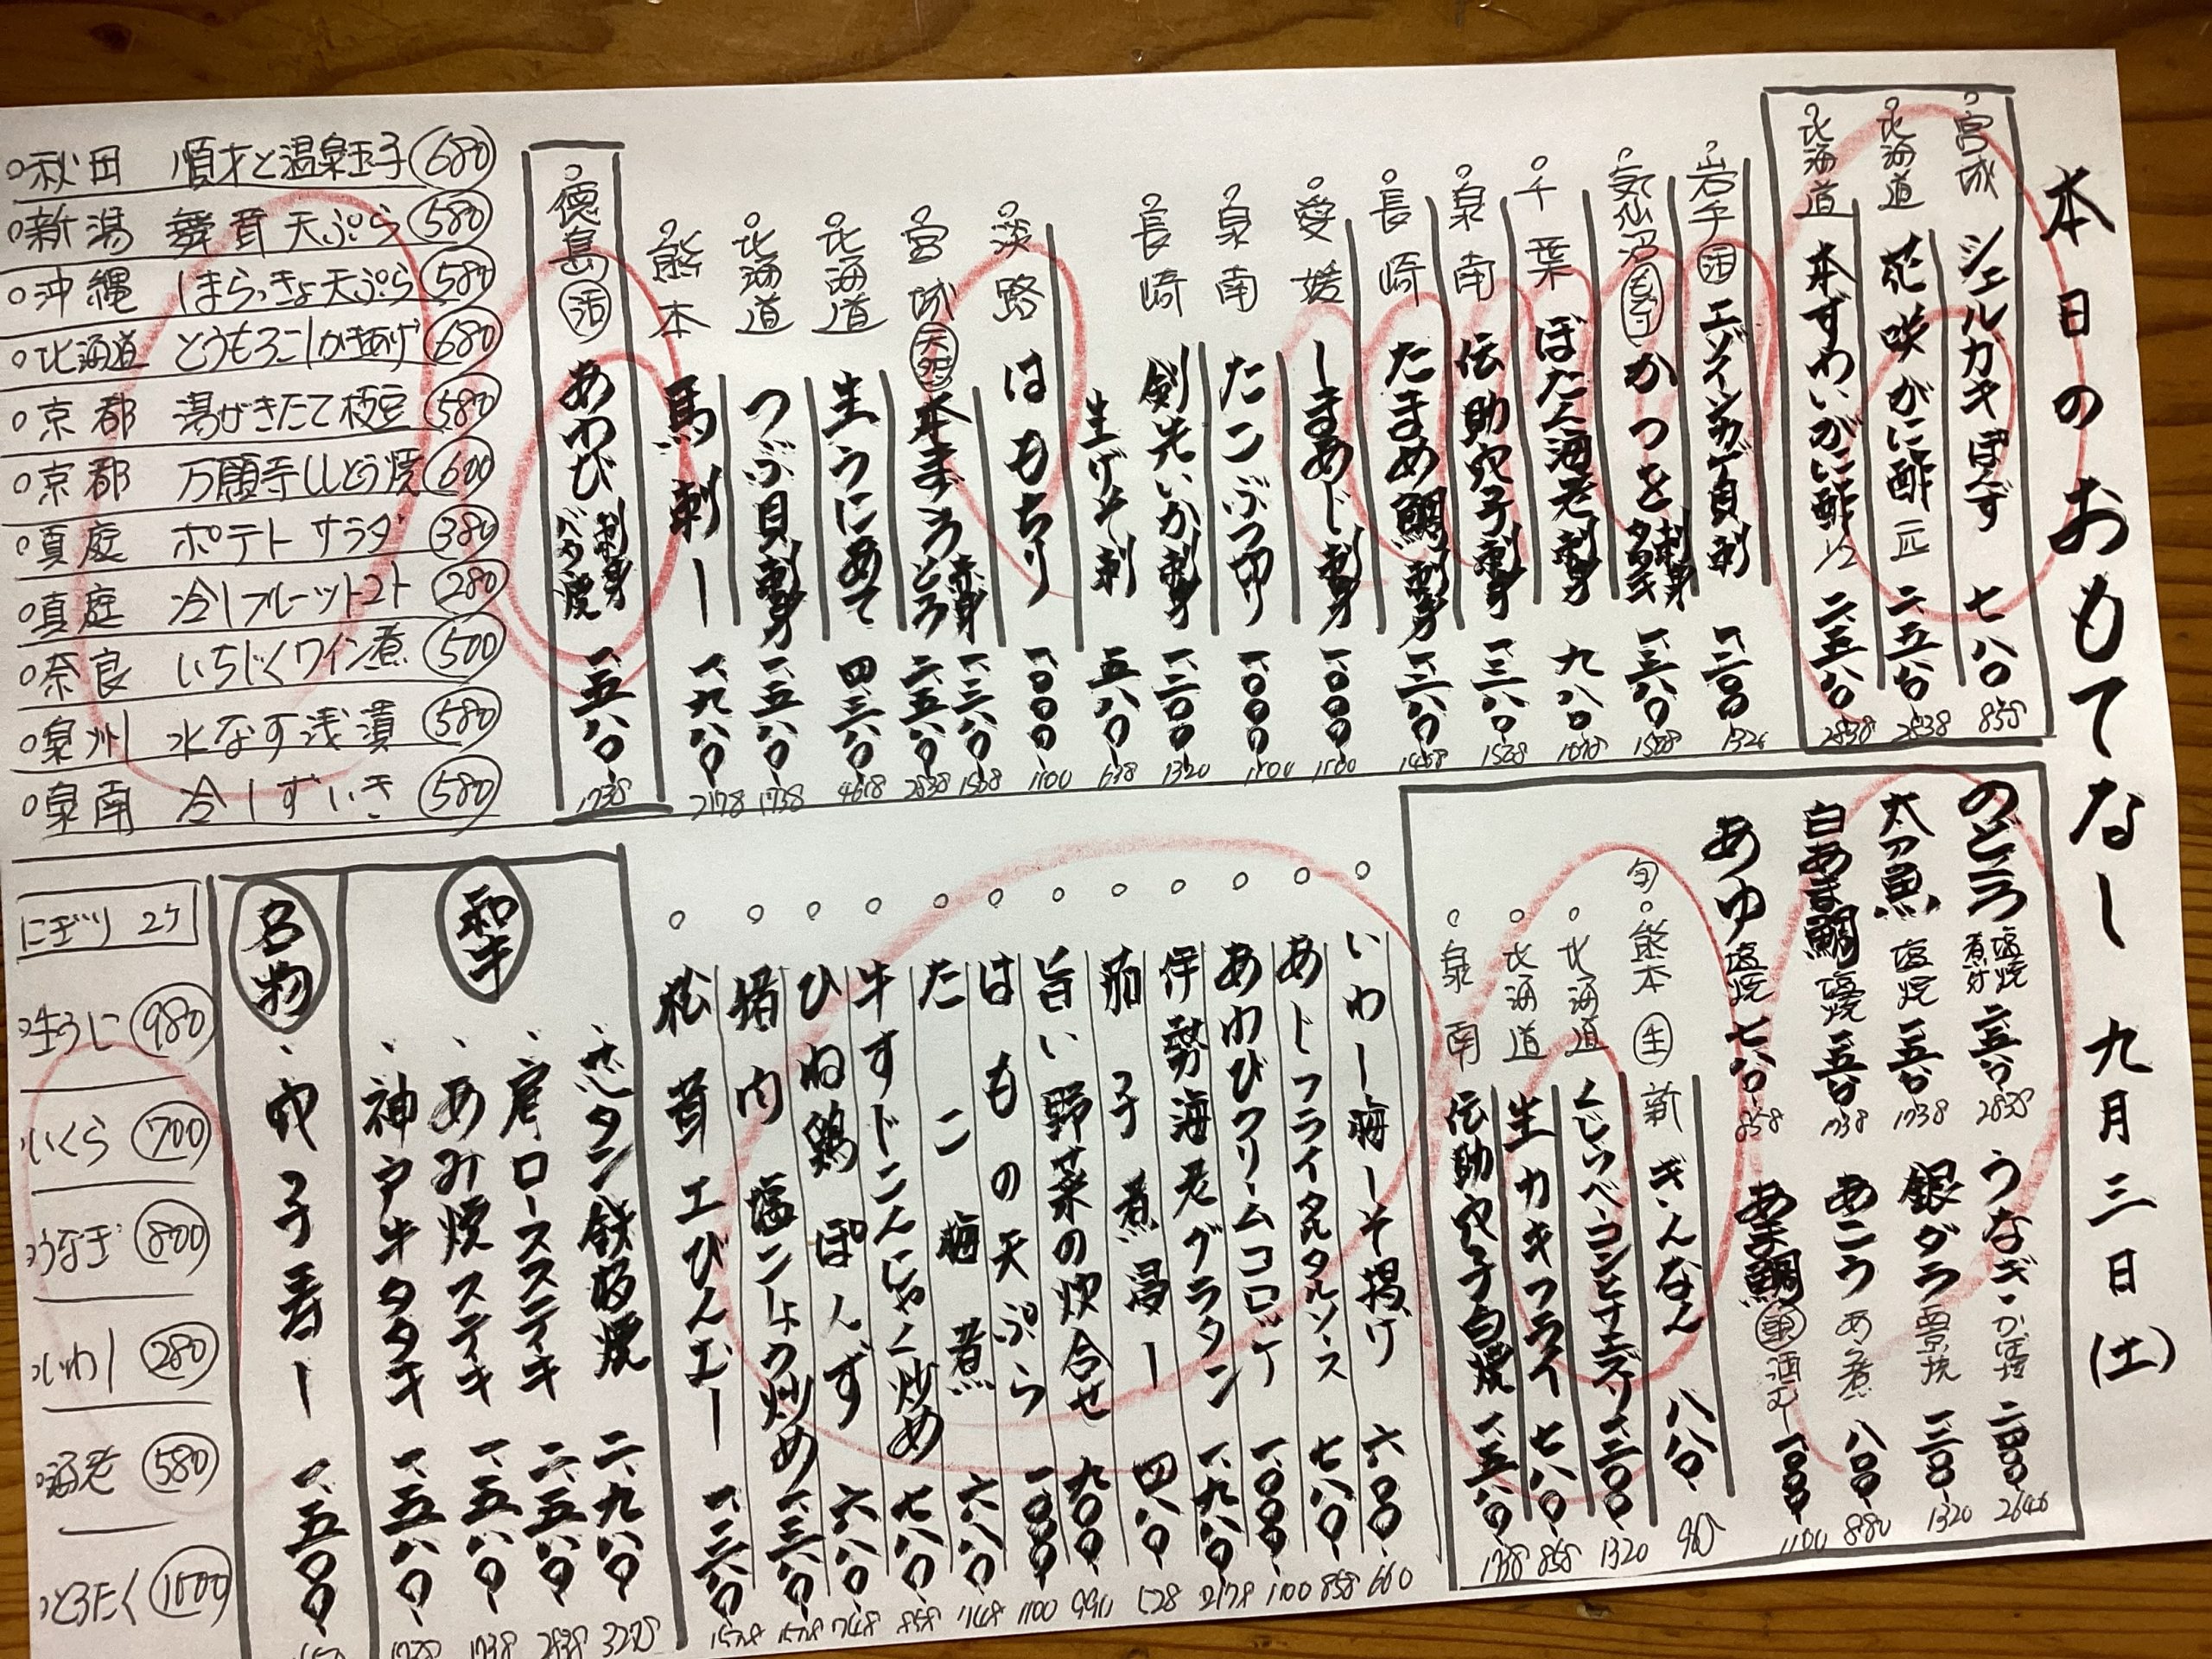 本日のおもてなし 九月三日(土)
宮城 シェルカキぽんず 七八〇 858
北海道 花咲がに酢 一匹 二、五八〇 2838
北海道 本ずわいがに酢 1/2 二、五八〇 2838
岩手 活 エゾイシカゲ貝刺 一、二〇〇 1320
気仙沼 かつを 刺身 タタキ 一、三八〇 1518
千葉 ぼたん海老刺身 九八〇 1078
泉南 伝助穴子刺身 一、三八〇 1518
長崎 たまめ鯛刺身
愛媛 しまあじ刺身 一、〇〇〇 1100
泉南 たこぶつ切り 一、〇〇〇 1100
長崎 剣先いか刺身 一、二〇〇 1320
生げそ刺 五八〇 638
淡路 はもちり 一、〇〇〇 1100
宮城 天然 本まぐろ 赤身 一、三八〇 1518
とろ 二、五八〇 2838
北海道 生うにあて 四、三八〇
北海道 つぶ貝刺身 一、五八〇 1738
熊本 馬刺し 一、九八〇 2178
徳島 活 あわび 刺身 バター焼 一、五八〇 1738
秋田 順才と温泉玉子 680
新潟 舞茸天ぷら 580
沖縄 しまらっきょ天ぷら 580
北海道 とうもろこしかきあげ 680
京都 湯がきたて枝豆 580
京都 万願寺ししとう焼 600
真庭 ポテトサラダ 380
真庭 冷しフルーツトマト 280
奈良 いちじくワイン煮 500
泉州 水なす浅漬 580
泉南 冷しずいき 580
のどぐろ 塩焼 煮付 二、五八〇 2838
太刀魚 塩焼 一、五八〇 1738
白あま鯛 塩焼 一、五八〇 1738
あゆ 塩焼 七八〇 858
うなぎ かば焼 二、四〇〇
銀ダラ 西京焼 一、二〇〇 1320
あこう あら煮 八〇〇 880
あま鯛 頭 酒むし 一、〇〇〇 1100
旬 熊本 生 新ぎんなん 八八〇
北海道 くじらベーコンとサエズリ 一、二〇〇 1320
北海道 生カキフライ 七八〇 858
泉南 伝助穴子白焼 一、五八〇 1738
いわし梅しそ揚げ 六〇〇 660
あじフライタルタルソース 七八〇 858
あわびクリームコロッケ 一、〇〇〇 1100
伊勢海老グラタン 一、九八〇 2178
茄子煮浸し 四八〇 528
旨い野菜の炊合せ 九〇〇 990
はもの天ぷら 一、〇〇〇 1100
たこ梅煮 六八〇 748
牛すじこんにゃく炒め 七八〇 858
ひね鶏ぽんず 六八〇 748
猪肉塩こしょう炒め 一、三八〇 1518
松茸土びんむし
和牛
芯タン鉄板焼 二、九八〇 3278
肩ロースステーキ 二、五八〇 2838
あみ焼ステーキ 一、五八〇 1738
神戸牛タタキ 一、五八〇
名物
穴子寿し 一、五〇〇
にぎり 2ケ
生うに 980
いくら 700
うなぎ 800
いわし 280
海老 580
とろたく 1000